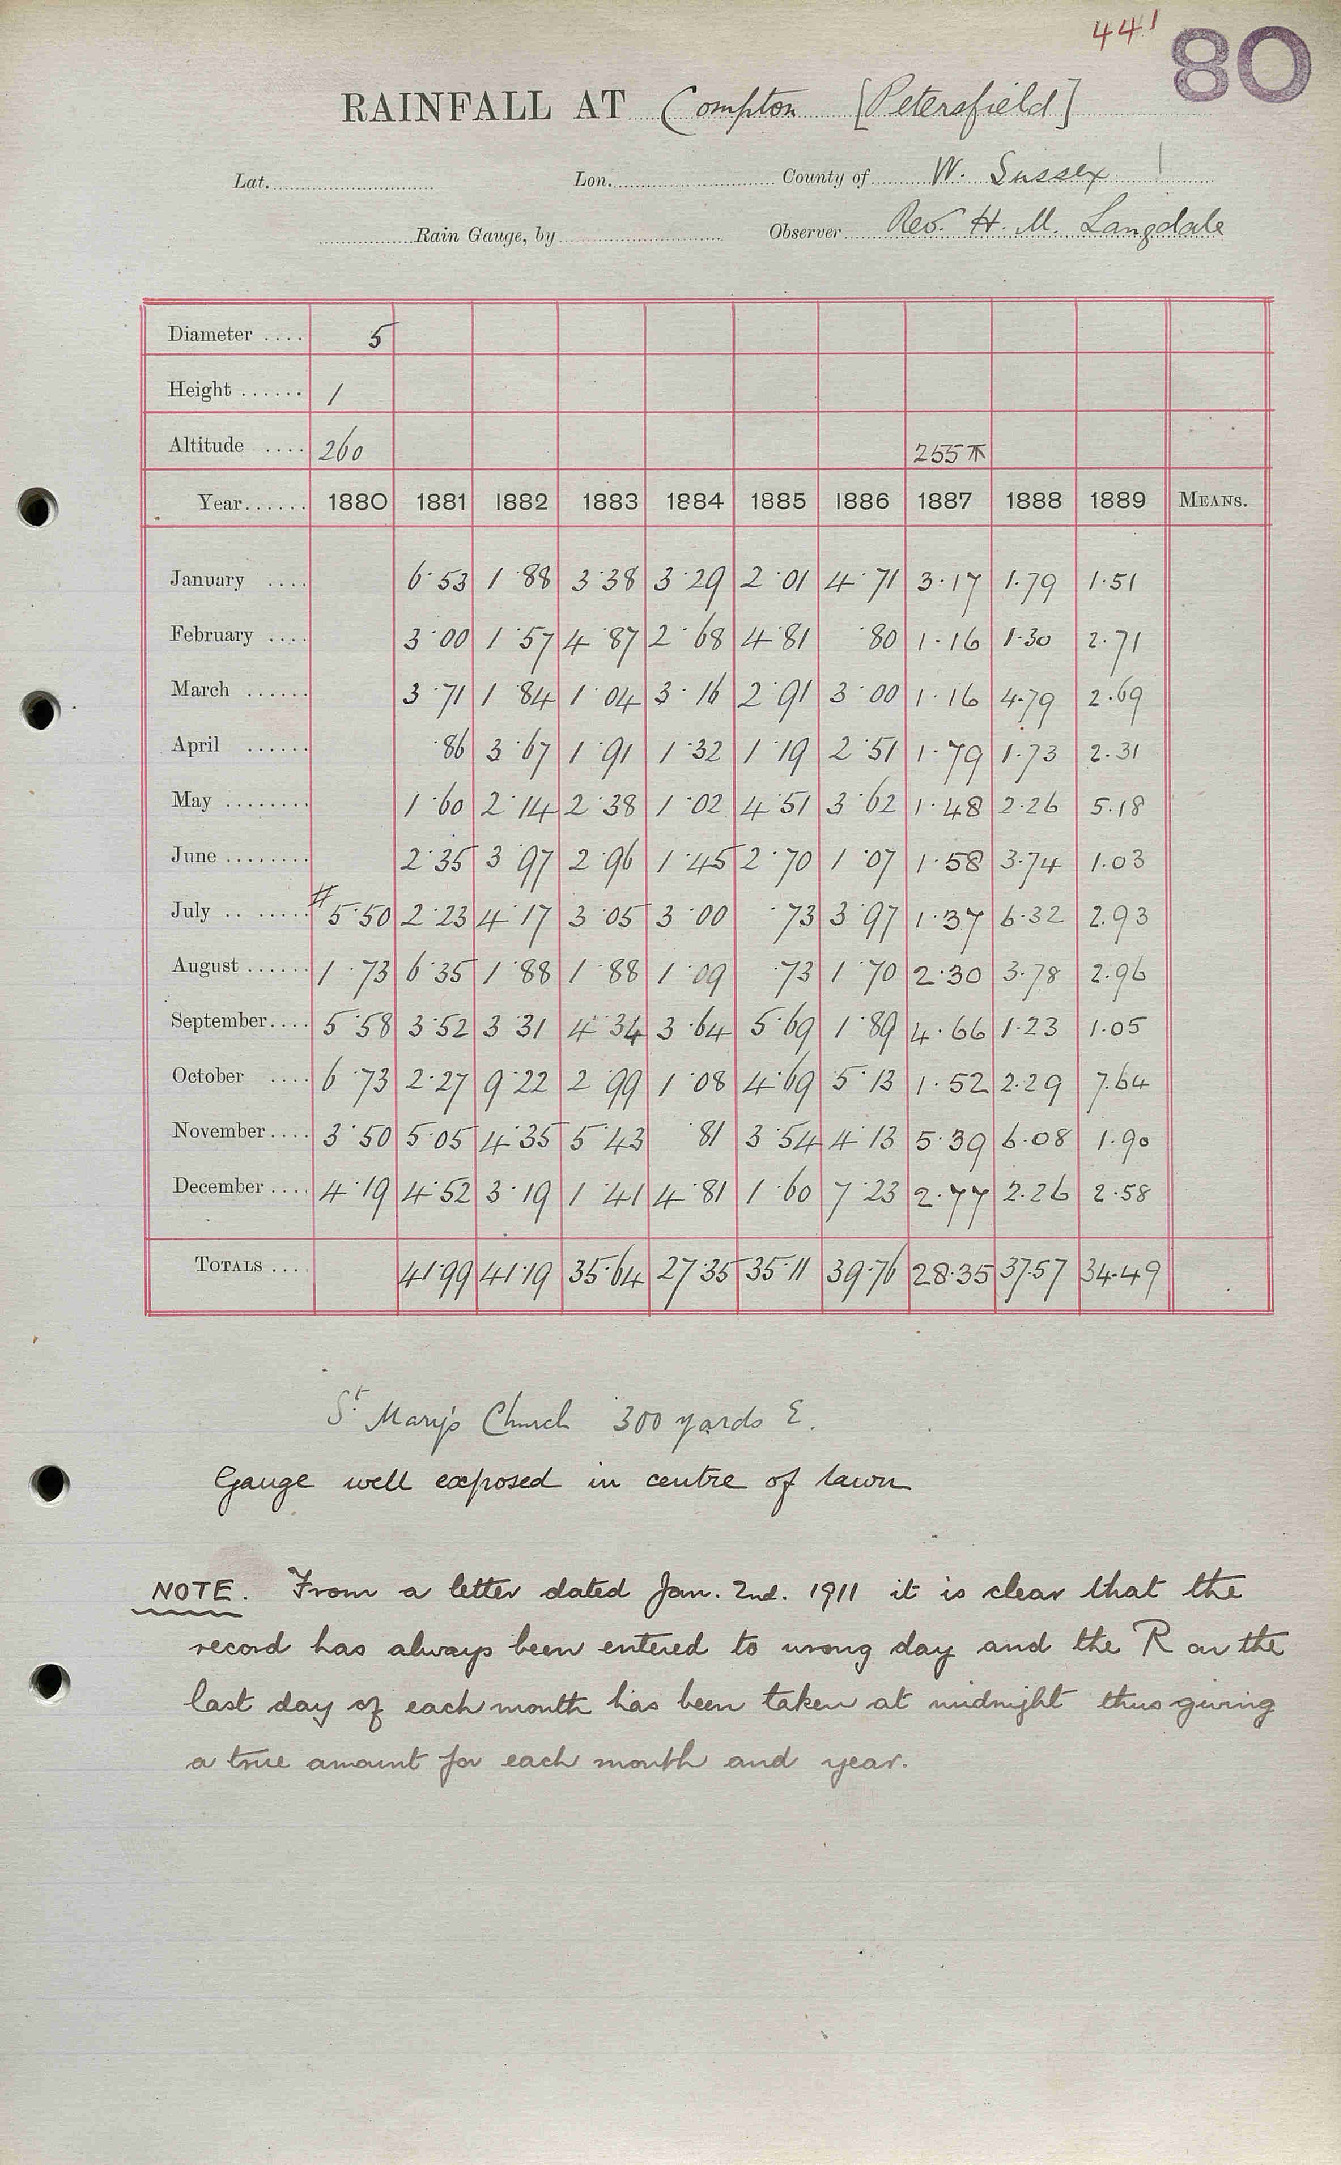 44.1 80
RAINFALL AT Compton [Petersfield]
Lat. Lon. County of W. Sussex
Rain Gauge, by Observer Rev. H. M. Langdale
Diameter .... 5
Height ...... 1
Altitude .... 260 255
Year...... 1880 1881 1882 1883 1884 1885 1886 1887 1888 1889 MEANS.
January .... 6·53 1·88 3·38 3·29 2·01 4·71 3·17 1·79 1·51
February .... 3·00 1·57 4·87 2·68 4·81 ·80 1·16 1·30 2·71
March ...... 3·71 1·84 1·04 3·16 2·91 3·00 1·16 4·79 2·69
April ...... ·86 3·67 1·91 1·32 1·19 2·51 1·79 1·73 2·31
May ........ 1·60 2·14 2·38 1·02 4·51 3·62 1·48 2·26 5·18
June ........ 2·35 3·97 2·96 1·45 2·70 1·07 1·58 3·74 1·03
July .. ...... #5·50 2·23 4·17 3·05 3·00 ·73 3·97 1·37 6·32 2·93
August ...... 1·73 6·35 1·88 1·88 1·09 ·73 1·70 2·30 3·78 2·96
September.... 5·58 3·52 3·31 4·34 3·64 5·69 1·89 4·66 1·23 1·05
October .... 6·73 2·27 9·22 2·99 1·08 4·69 5·13 1·52 2·29 7·64
November.... 3·50 5·05 4·35 5·43 ·81 3·54 4·13 5·39 6·08 1·90
December .... 4·19 4·52 3·19 1·41 4·81 1·60 7·23 2·77 2·26 2·58
TOTALS .... 41·99 41·19 35·64 27·35 35·11 39·76 28·35 37·57 34·49
St. Mary's Church 300 yards E.
Gauge well exposed in centre of lawn
NOTE. From a letter dated Jan. 2nd. 1911 it is clear that the
record has always been entered to wrong day and the R on the
last day of each month has been taken at midnight thus giving
a true amount for each month and year.